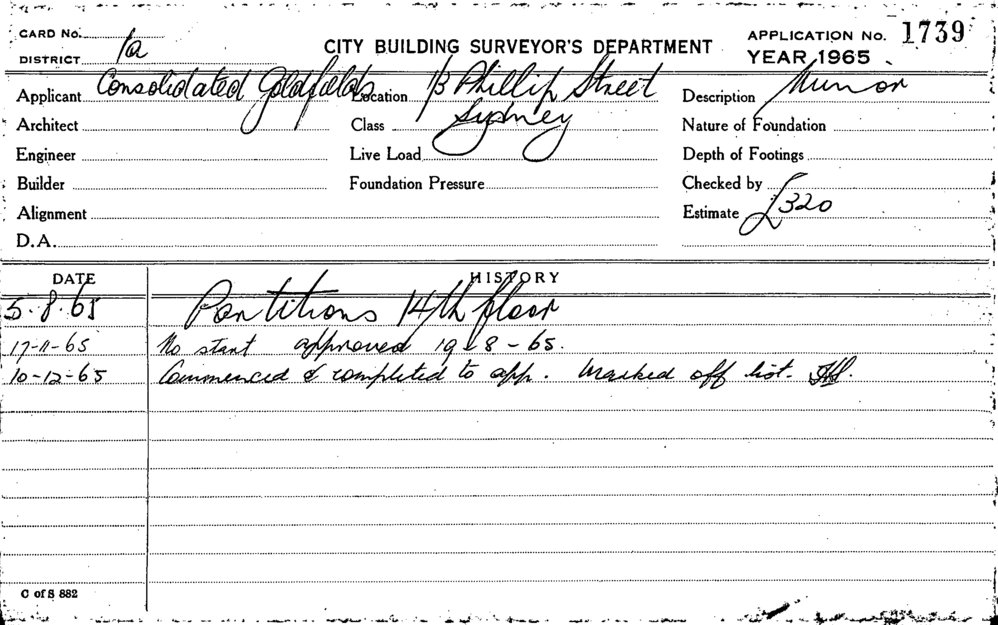 CARD No.
DISTRICT 1a
CITY BUILDING SURVEYOR'S DEPARTMENT
APPLICATION No. 1739
YEAR 1965
Applicant Consolidated Goldfields Location 1/3 Phillip Street Description Minor
Architect Class Sydney Nature of Foundation
Engineer Live Load Depth of Footings
Builder Foundation Pressure Checked by
Alignment Estimate £320
D.A.
DATE HISTORY
5.8.65 Partitions 14th floor
17-11-65 No start approved 19-8-65.
10-12-65 Commenced & completed to app. Marked off list.
C of S 882